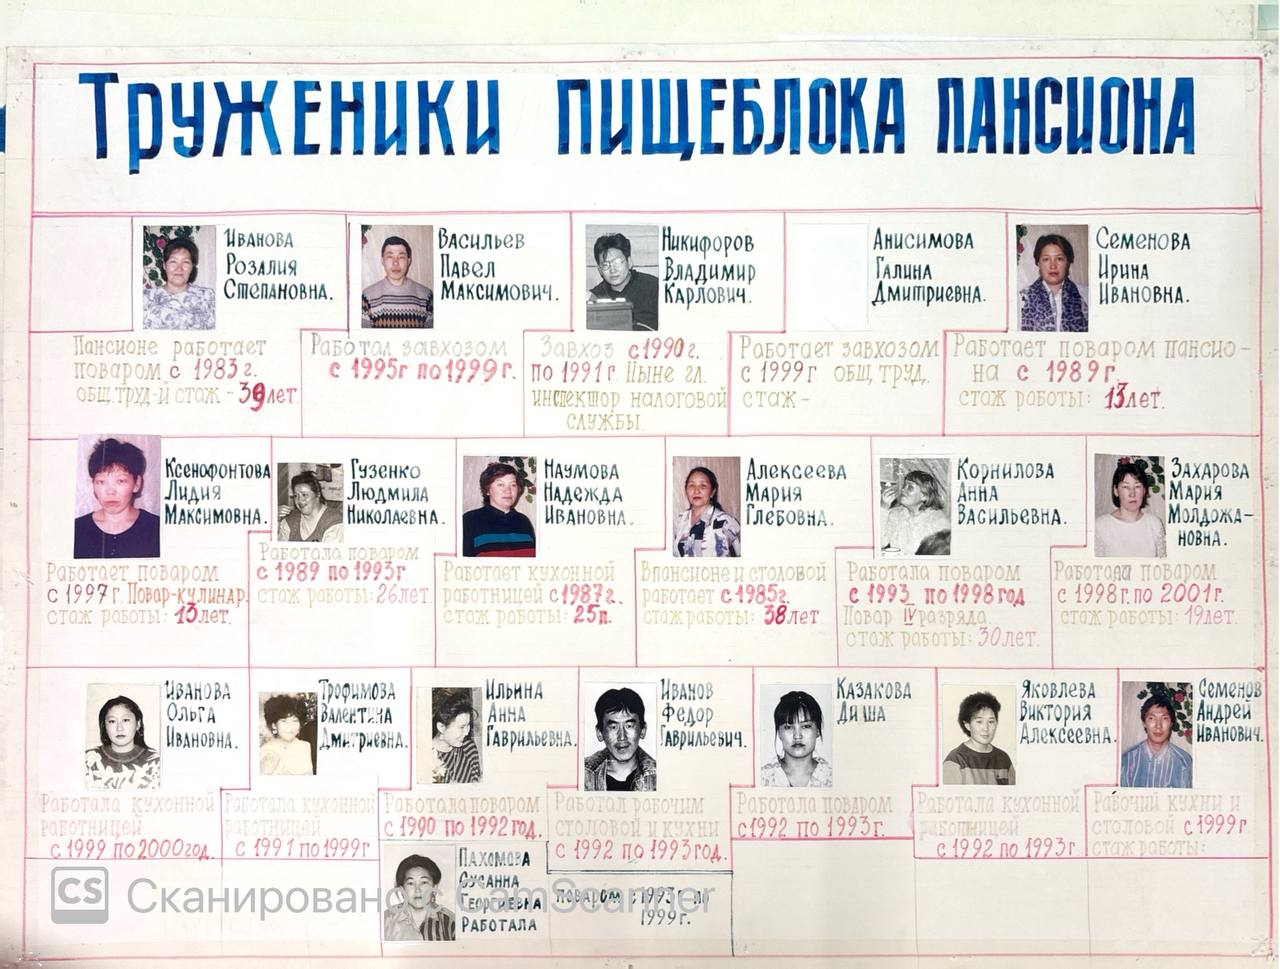 Труженики пищеблока пансиона
Иванова
Розалия
Степановна.
Пансионе работает
поваром с 1983 г.
общ. труд-й стаж - 39 лет.
Васильев
Павел
Максимович.
Работал завхозом
с 1995г по 1999 г.
Никифоров
Владимир
Карлович.
Завхоз с 1990 г.
по 1991 г. Ныне гл.
инспектор налоговой
службы.
Анисимова
Галина
Дмитриевна.
Работает завхозом
с 1999 г общ. труд.
стаж -
Семенова
Ирина
Ивановна.
Работает поваром пансио-
на с 1989 г.
стаж работы: 13 лет.
Ксенофонтова
Лидия
Максимовна.
Работает поваром
с 1997 г. Повар-кулинар.
стаж работы: 13 лет.
Гузенко
Людмила
Николаевна.
Работала поваром
с 1989 по 1993 г.
стаж работы: 26 лет.
Наумова
Надежда
Ивановна.
Работает кухонной
работницей с 1987 г.
стаж работы: 25 л.
Алексеева
Мария
Глебовна.
В пансионе и столовой
работает с 1985 г.
стаж работы: 38 лет
Корнилова
Анна
Васильевна.
Работала поваром
с 1993 по 1998 год
Повар IV разряда.
стаж работы: 30 лет.
Захарова
Мария
Молдожа-
новна.
Работала поваром
с 1998 г. по 2001 г.
стаж работы: 19 лет.
Иванова
Ольга
Ивановна.
Работала кухонной
работницей
с 1999 по 2000 год.
Трофимова
Валентина
Дмитриевна.
Работала кухонной
работницей
с 1991 по 1999 г
Ильина
Анна
Гаврильевна.
Работала поваром
с 1990 по 1992 год.
Иванов
Федор
Гаврильевич.
Работал рабочим
столовой и кухни
с 1992 по 1993 год.
Казакова
Диша
Работала поваром
с 1992 по 1993 г.
Яковлева
Виктория
Алексеевна.
Работала кухонной
работницей
с 1992 по 1993 г
Семенов
Андрей
Иванович.
Рабочий кухни и
столовой с 1999 г
стаж работы:
Пахомова
Сусанна
Георгиевна
Работала
поваром с 1993 г по
1999 г.
CS Сканировано с CamScanner